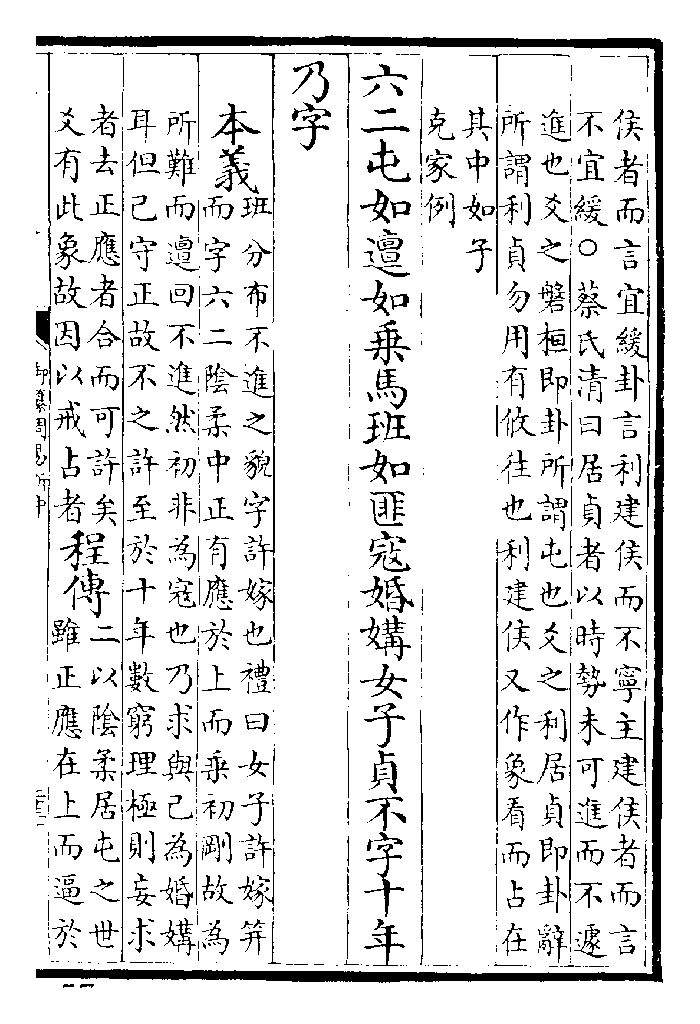 侯者而言宜緩卦言利建侯而不寧主建侯者而言
不宜緩○蔡氏清曰居貞者以時勢未可進而不遽
進也爻之磐桓即卦所謂屯也爻之利居貞即卦辭
所謂利貞勿用有攸往也利建侯又作象看而占在
其中如子
克家例
六二屯如邅如乗馬班如匪寇婚媾女子貞不字十年
乃字
本義班分布不進之貌字許嫁也禮曰女子許嫁笄
而字六二陰柔中正有應於上而乗初剛故為
所難而邅回不進然初非為寇也乃求與己為婚媾
耳但己守正故不之許至於十年數窮理極則妄求
者去正應者合而可許矣
爻有此象故因以戒占者
程傳二以陰柔居屯之世
雖正應在上而逼於
御纂周易折中